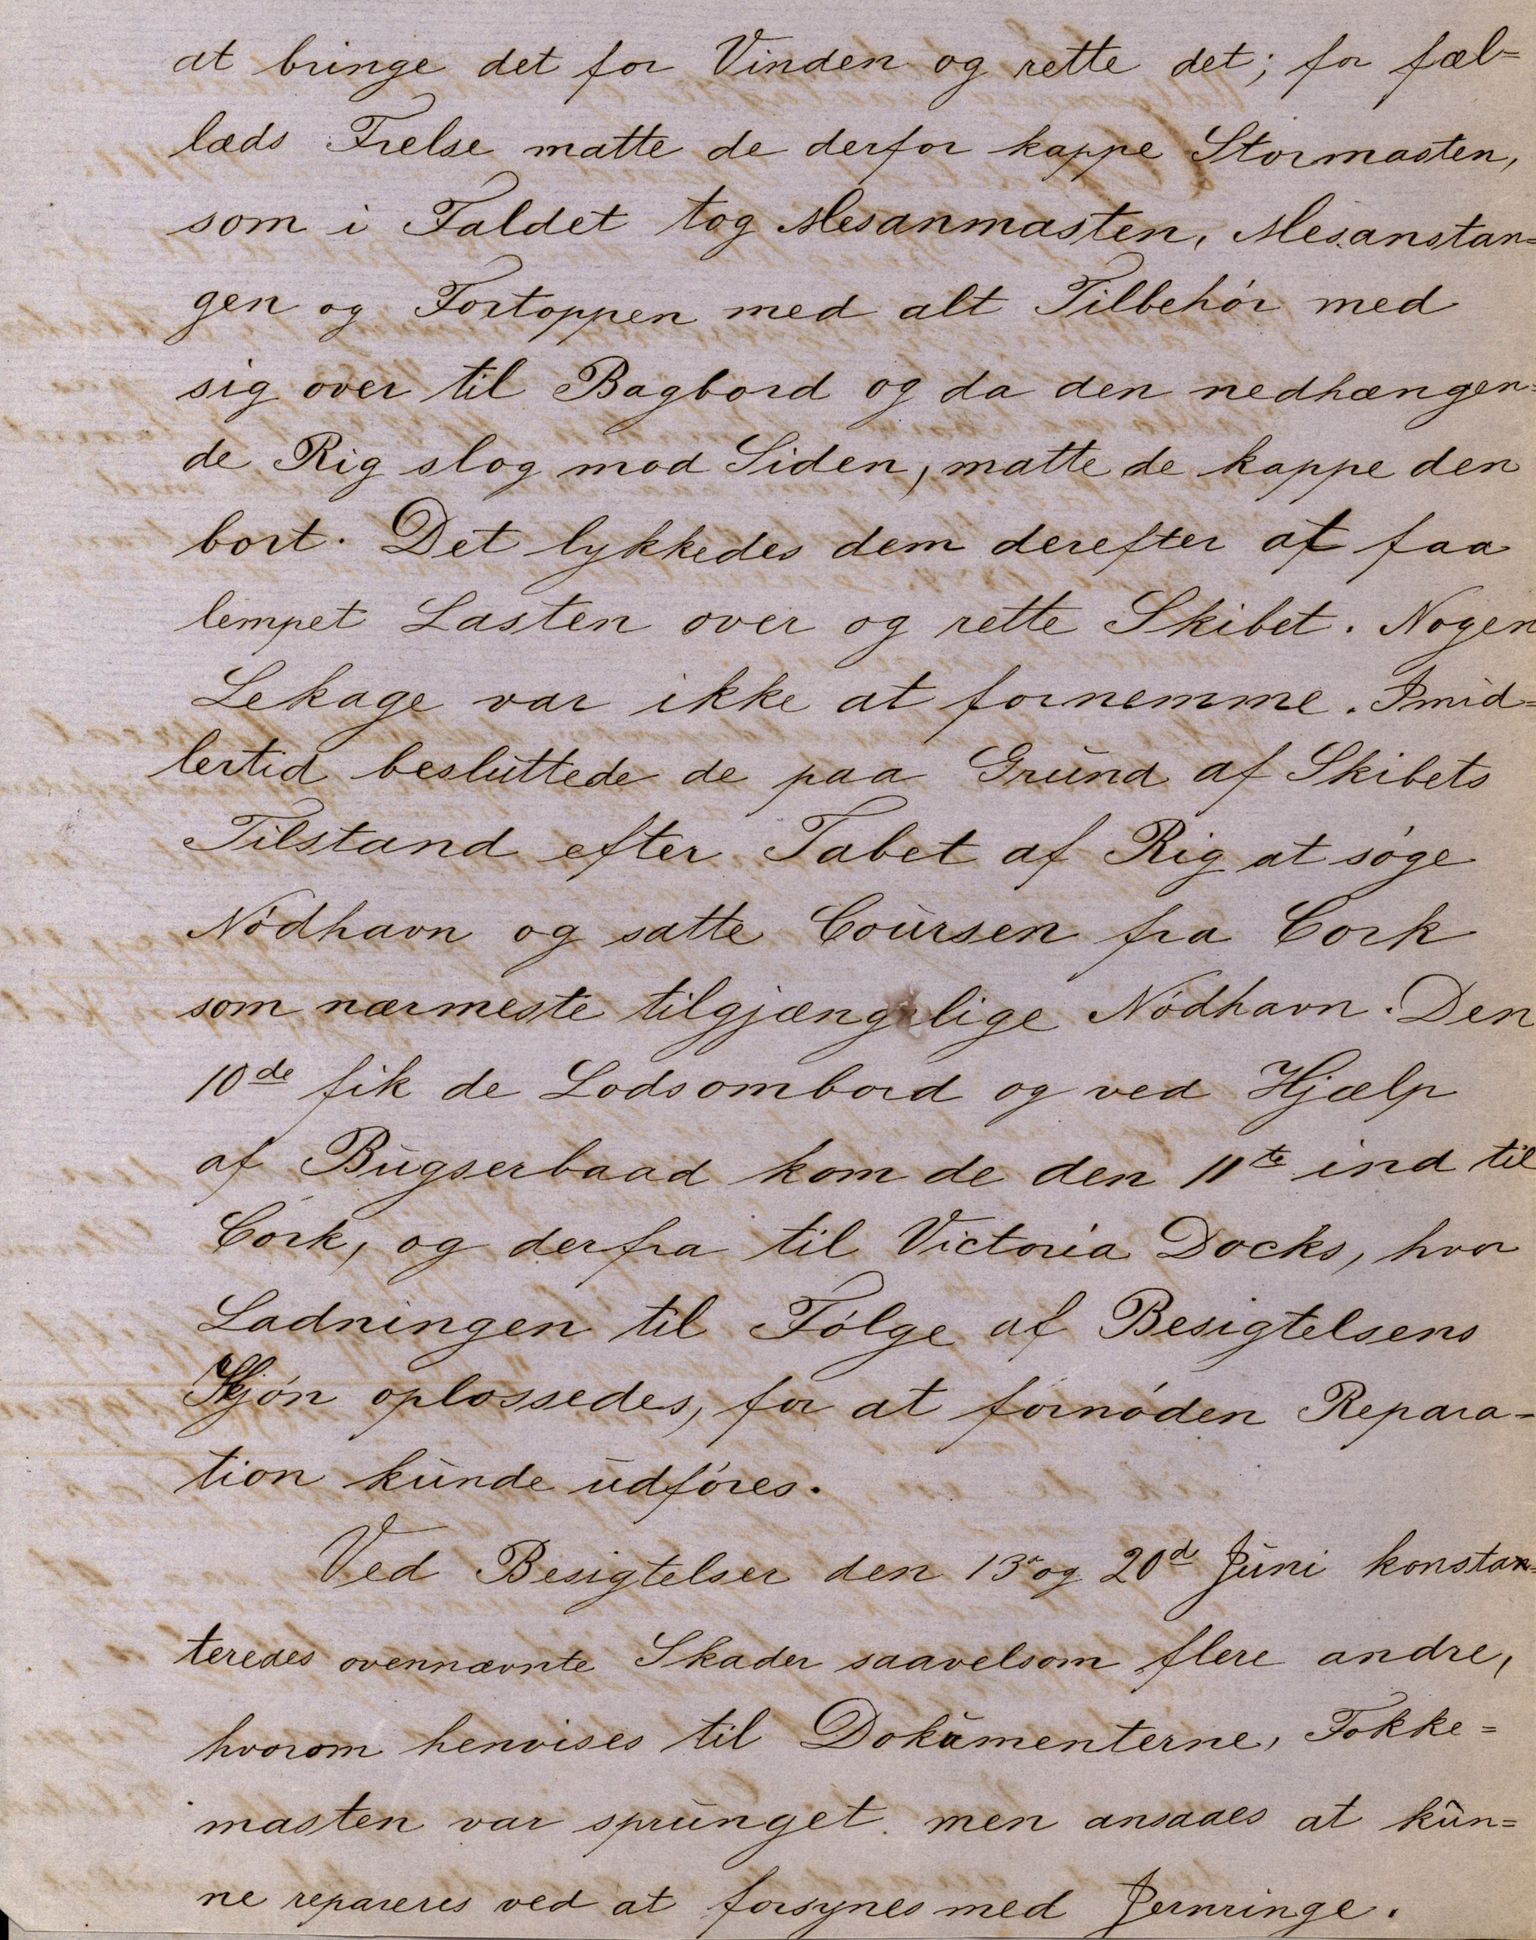 at bringe det for Vinden og rette det; for fæl=
læds Frelse matte de derfor kappe Stormasten,
som i Faldet tog Mesanmasten, Mesanstan=
gen og Fortoppen med alt Tilbehór med
sig over til Bagbord og da den nedhængen=
de Rig slog mod Siden, matte de kappe den
bort. Det lykkedes dem derefter at faa
lempet Lasten over og rette Skibet. Nogen
Lekage var ikke at fornemme. Imid=
lertid besluttede de paa Grund af Skibets
Tilstand efter Tabet af Rig at sóge
Nódhavn og satte Coursen fra Cork
som nærmeste tilgjængelige Nódhavn. Den
10de fik de Lods ombord og ved Hjælp
af Bugserbaad kom de den 11te ind til
Cork, og derfra til Victoria Docks, hvor
Ladningen til Fólge af Besigtelsens
Skjón oplossedes, for at fornóden Repara=
tion kunde udfóres.
Ved Besigtelser den 13de og 20de Juni konstan=
teredes ovennævnte Skader saavelsom flere andre,
hvorom henvises til Dokumenterne, Fokke=
masten var sprunget men ansaaes at kun=
ne repareres ved at forsynes med Jernringe.